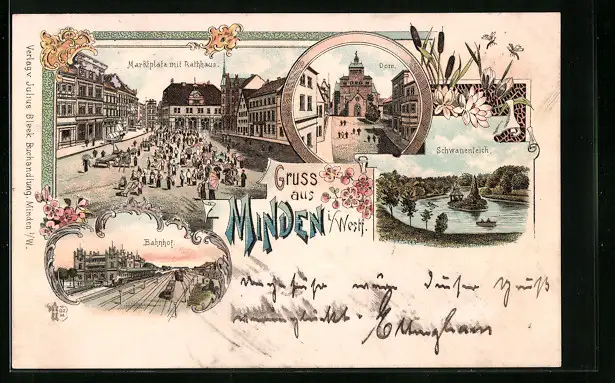 Verlag v. Julius Bleek Buchhandlung, Minden i/W.
Marktplatz mit Rathhaus.
Dom.
Schwanenteich.
Gruss
aus
MINDEN
i/Westf.
Bahnhof.
dieser Gruß
Ellingham